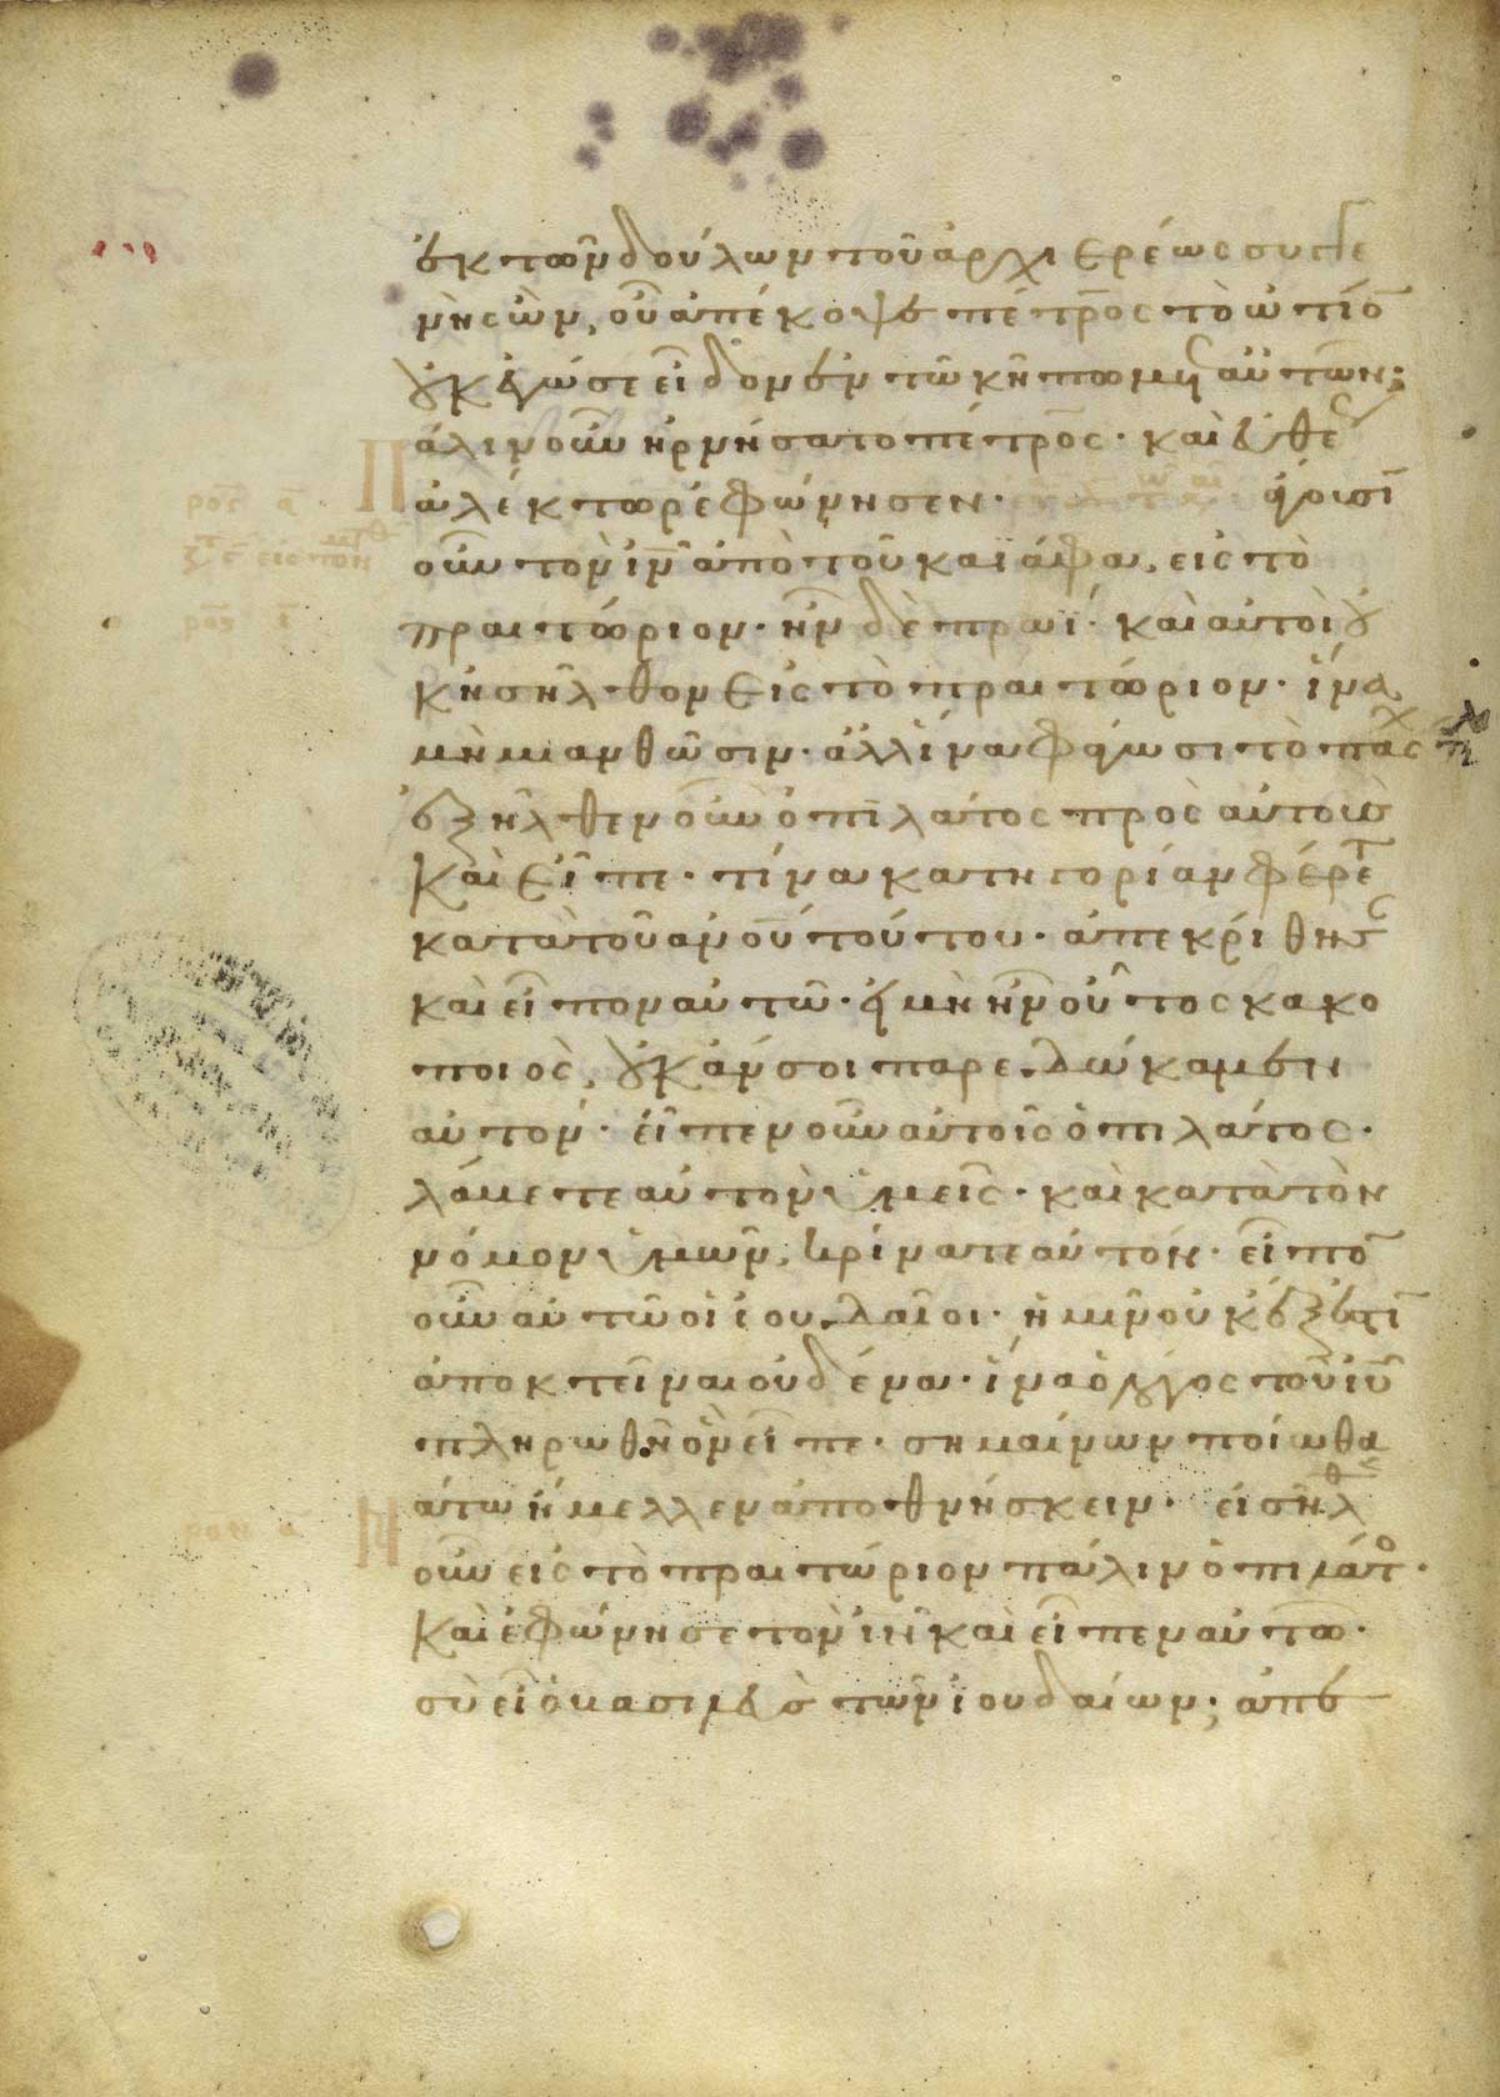 ἐκ τῶν δούλων τοῦ ἀρχιερέως συγγε
νὴς ὢν, οὗ ἀπέκοψε πέτρος τὸ ὠτίο
οὐκ ἐγώ σε εἶδον ἐν τῶ κήπω μετ αὐτοῦ;
Πάλιν οὖν ἠρνήσατο πέτρος· καὶ εὐθε
ἀλέκτωρ ἐφώνησεν· ἄγουσι
οὖν τὸν ιν ἀπὸ τοῦ καϊάφα, εἰς τὸ
πραιτώριον· ἦν δὲ πρωί· καὶ αὐτοὶ οὐ
κ εἰσῆλθον εἰς τὸ πραιτώριον· ἵνα
μὴ μιανθῶσιν· ἀλλ ἵνα φάγωσι τὸ πάσχ
ἐξῆλθεν οὖν ὁ πιλάτος πρὸς αὐτοὺς
καὶ εἶπε· τίνα κατηγορίαν φέρετ
κατὰ τοῦ ανου τούτου· ἀπεκρίθησ
καὶ εἶπον αὐτῶ· εἰ μὴ ἦν οὗτος κακο
ποιὸς, οὐκ ἄν σοι παρεδώκαμεν
αὐτόν· εἶπεν οὖν αὐτοῖς ὁ πιλάτος·
λάβετε αὐτὸν ὑμεῖς· καὶ κατὰ τὸν
νόμον ὑμῶν, κρίνατε αὐτόν· εἶπο
οὖν αὐτῶ οἱ ἰουδαῖοι· ἡμῖν οὐκ ἔξεστι
ἀποκτεῖναι οὐδένα· ἵνα ὁ λόγος τοῦ ιυ
πληρωθῆ ὃν εἶπε· σημαίνων ποίω θα
νάτω ἤμελλεν ἀποθνήσκειν· εἰσῆλθ
οὖν εἰς τὸ πραιτώριον πάλιν ὁ πιλάτο·
καὶ ἐφώνησε τὸν ιν καὶ εἶπεν αὐτῶ·
σὺ εἶ ὁ βασιλεὺς τῶν ἰουδαίων; ἀπε